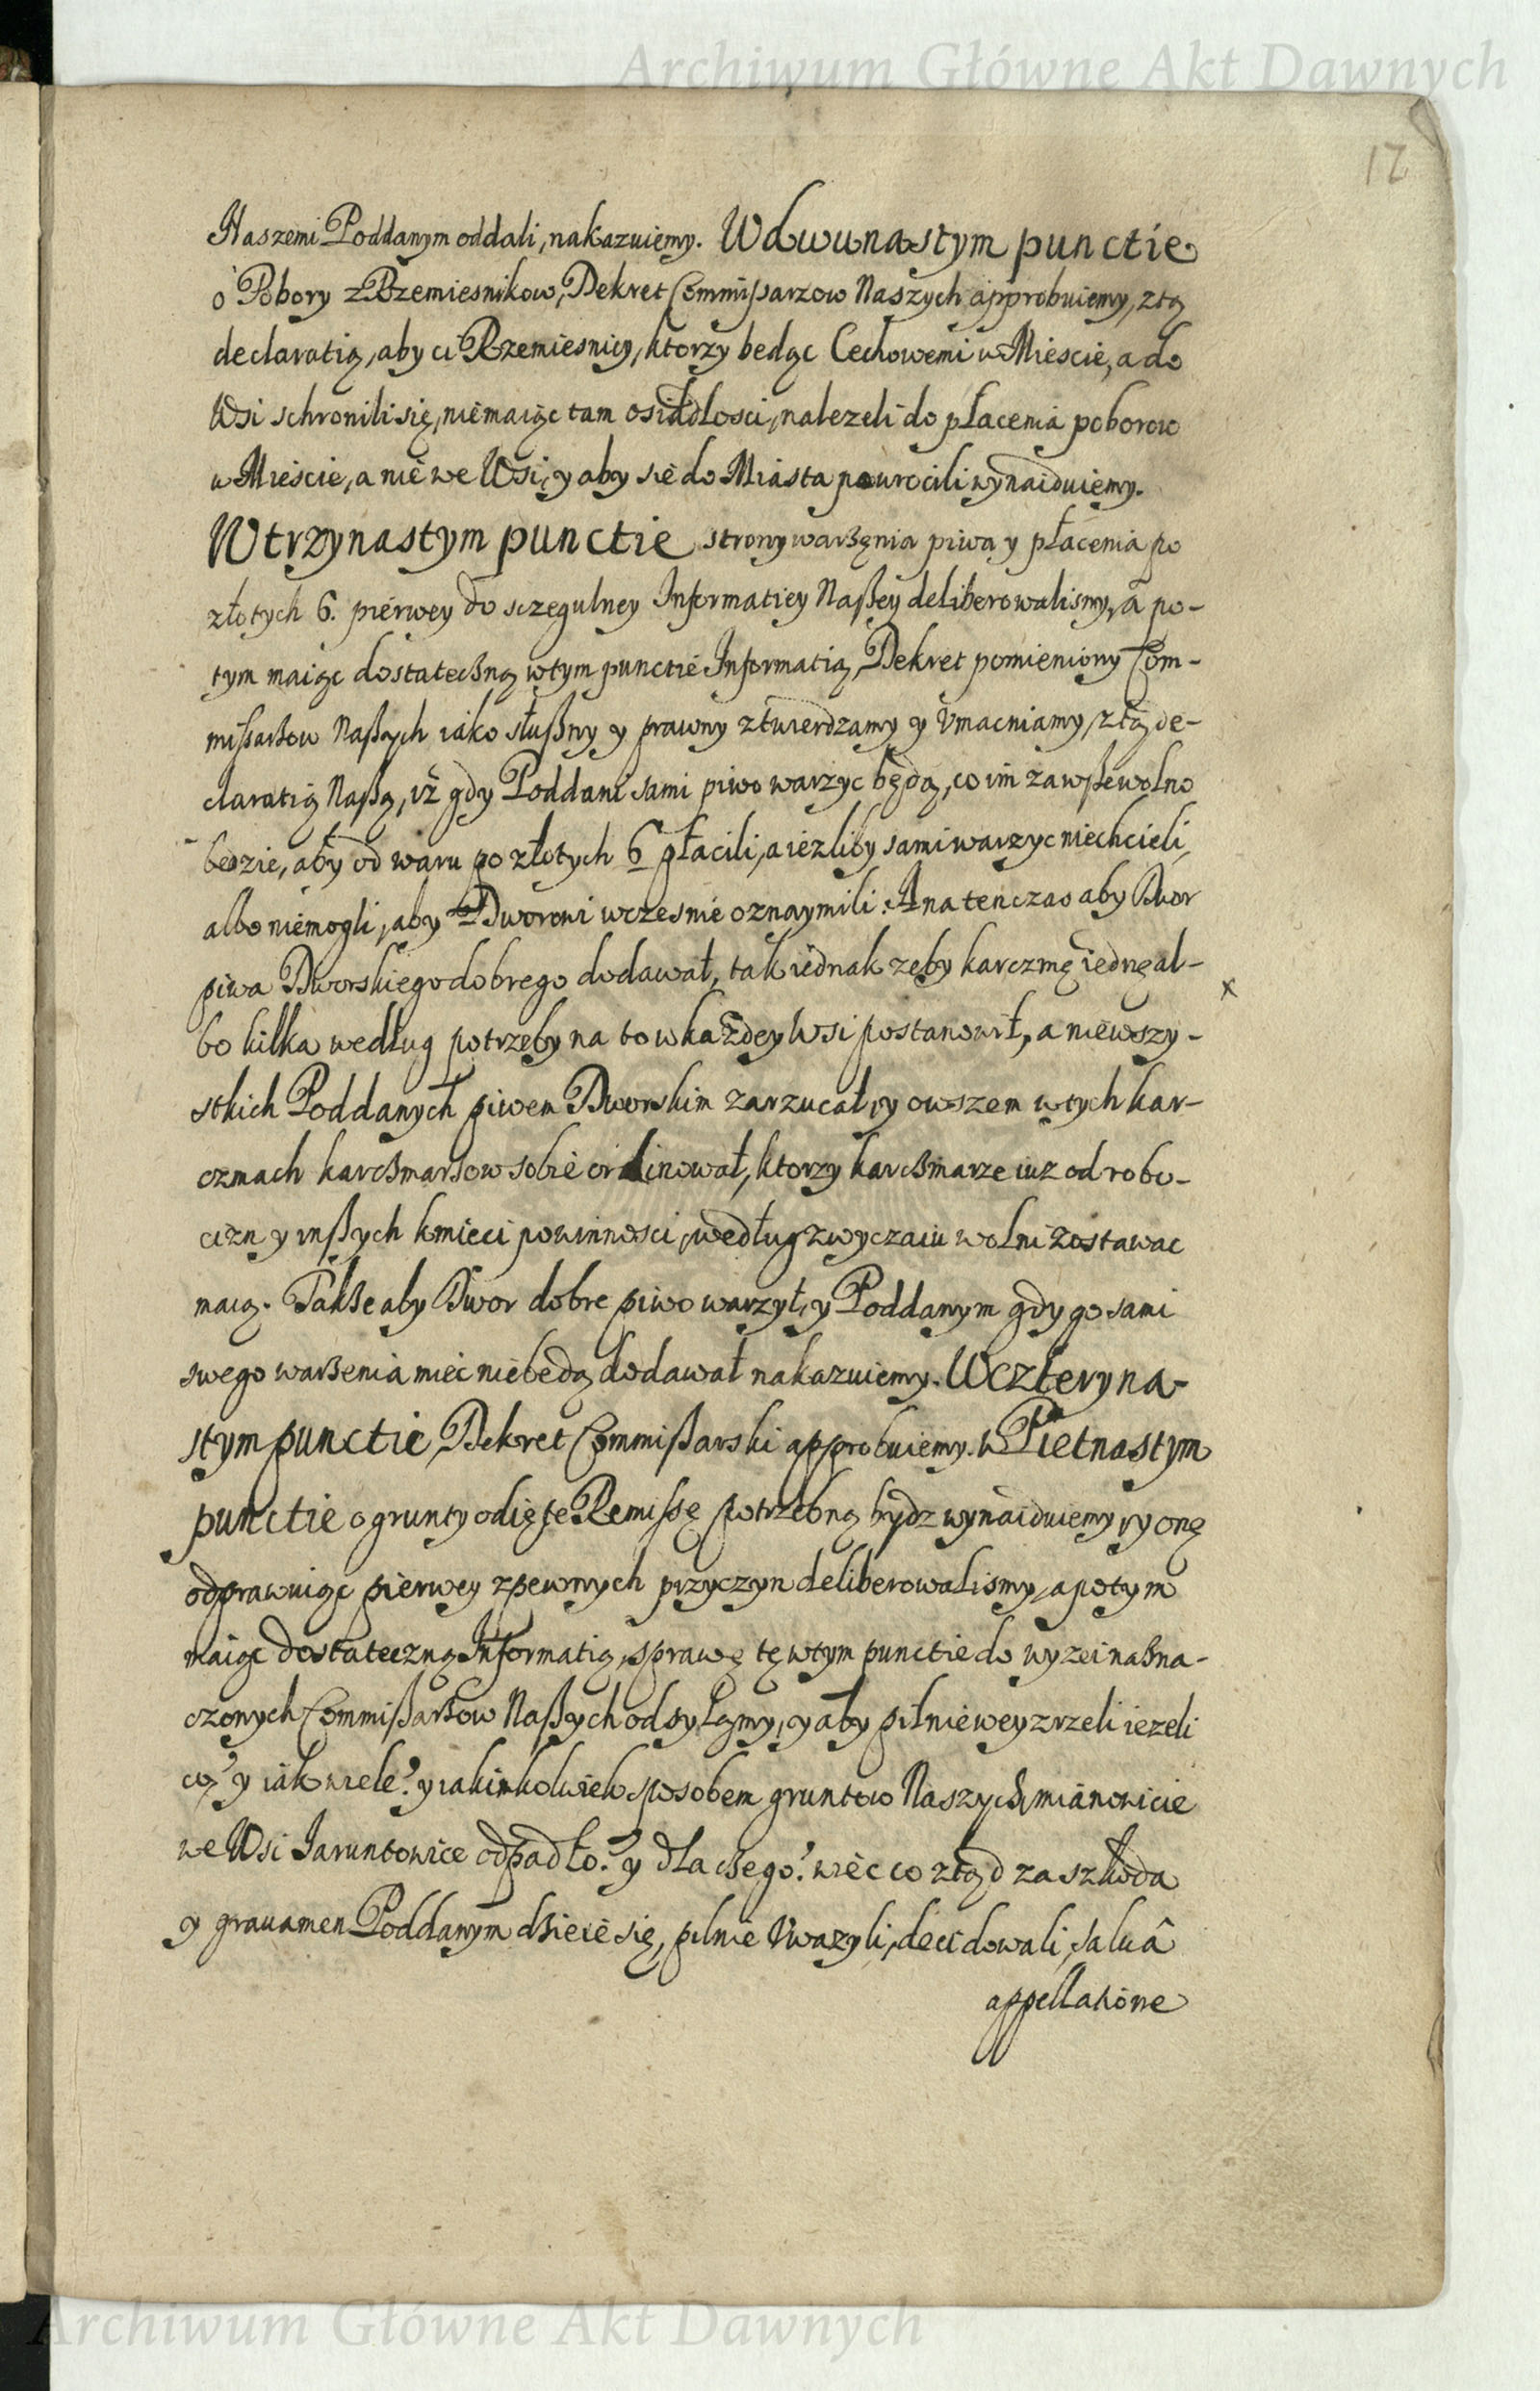 Archiwum Główne Akt Dawnych
12
Naszemi Poddanym oddali, nakazuiemy. W dwunastym punctie
o Pobory z Rzemiesnikow, Dekret Commissarzow Naszych approbuiemy, z tą
declaratią, aby ci Rzemiesnicy, ktorzy bedąc Cechowemi w Miescie, a do
Wsi schronili się, niemaiąc tam osiadłosci, nalezeli do płacenia poborow
w Miescie, a nie we Wsi, y aby sie do Miasta powrocili wynaiduiemy.
W trzynastym punctie strony warßęnia piwa y płacenia po
złotych 6. pierwey do sczegulney Informatiey Naßey deliberowalismy, a po-
tym maiąc dostatecßną w tym punctie Informatią, Dekret pomieniony Com-
missarßow Naßych iako słußny y prawny ztwierdzamy y Vmacniamy, z tą de-
claratią Naßą, iż gdy Poddani sami piwo warzyc będą, co im zawße wolno
bedzie, aby od waru po złotych 6 płacili, a iezliby sami warzyc niechcieli,
albo niemogli, aby Dworowi wczesnie oznaymili. A na tenczas aby Dwor
piwa Dworskiego dobrego dodawał, tak iednak zeby karczmę iednę al-
bo kilka według potrzeby na to w każdey Wsi postanowił, a niewszy-
stkich Poddanych piwem Dworskim zarzucał, y owszem w tych kar-
czmach karcßmarßow sobie ordinował, ktorzy karcßmarze iuz od robo-
cizn y inßych kmieci powinnosci, według zwyczaiu wolni zostawac
maią. Takße aby Dwor dobre piwo warzył, y Poddanym gdy go sami
swego warßenia miec niebedą dodawał nakazuiemy. W czteryna-
stym punctie Dekret Commißarski approbuiemy. W Pietnastym
punctie o grunty odięte Remissę potrzebną bydz wynaiduiemy, y onę
odprawuiąc pierwey z pewnych przyczyn deliberowalismy, a potym
maiąc dostateczną Informatią, sprawę tę w tym punctie do wyzei naßna-
czonych Commißarßow Naßych odsyłamy, y aby pilnie weyzrzeli iezeli
co? y iak wiele? y iakimkolwiek sposobem gruntow Naszych, mianowicie
we Wsi Jaruntowice odpadło? y dla cßego? wiec co ztąd za szkoda
y grauamen Poddanym dßieie się, pilnie Vwazyli, decidowali, saluâ
appellatione
Archiwum Główne Akt Dawnych